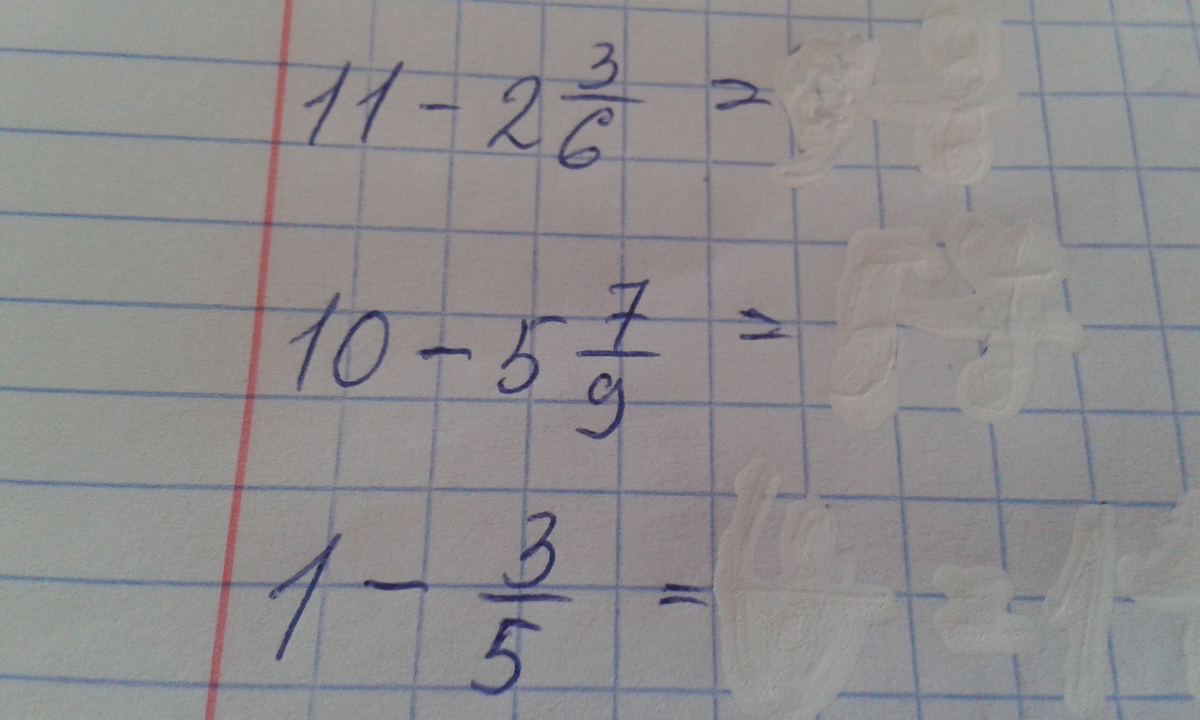 11 - 2 3/6 =
10 - 5 7/9 =
1 - 3/5 =